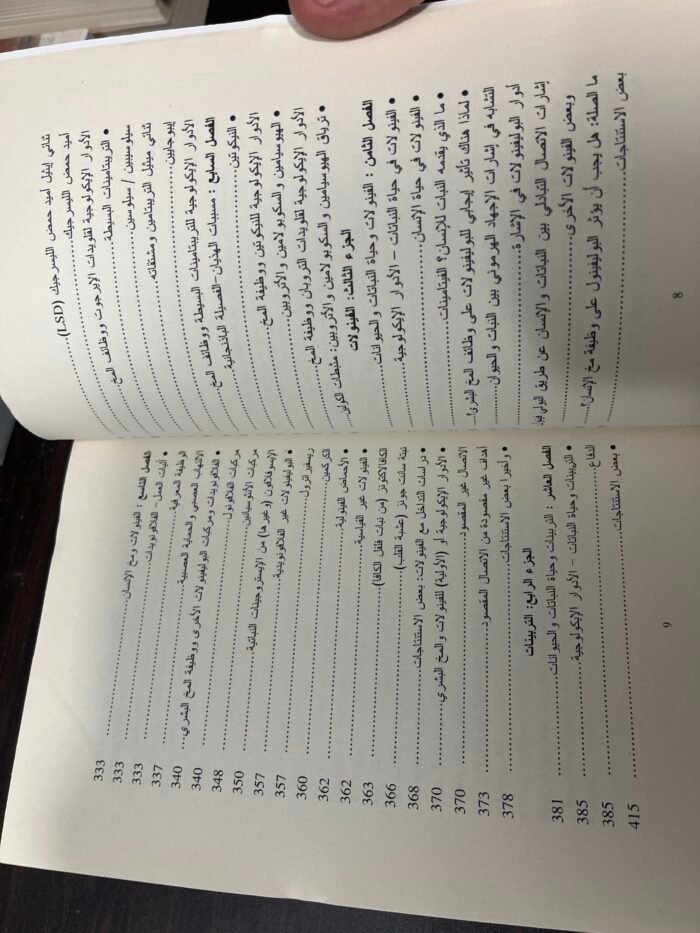 ثنائي إيثيل أميد حمض الليسرجيك (LSD)
أميد حمض الليسرجيك
الأدوار الإيكولوجية لقلويدات الإيرجوت ووظائف المخ
• التريبتامينات البسيطة
سيلوسيبين / سيلوسين
ثنائي ميثيل التريبتامين ومشتقاته
إيبوجايين
الأدوار الإيكولوجية للتريبتامينات البسيطة ووظائف المخ
الفصل السابع : مسببات الهذيان-الفصيلة الباذنجانية
• النيكوتين
الأدوار الإيكولوجية للنيكوتين ووظيفة المخ
• الهيوسيامين و السكوبولامين والأتروبين
الأدوار الإيكولوجية لقلويدات التروبان ووظيفة المخ
• ترياق الهيوسيامين و السكوبولامين والأتروبين: مثبطات الكولين
الجزء الثالث: الفينولات
الفصل الثامن : الفينولات وحياة النباتات و الحيوانات
• الفينولات في حياة النباتات – الأدوار الإيكولوجية
• الفينولات في حياة الإنسان
• ما الذي يقدمه النبات للإنسان؟ الفيتامينات
• لماذا هناك تأثير إيجابي للبوليفينولات على وظائف المخ البشري؟
التشابه في إشارات الإجهاد الهرموني بين النبات و الحيوان
أدوار البوليفينولات في الإشارة
إشارات الاتصال التبادلي بين النباتات والإنسان عن طريق البولي
وبعض الفينولات الأخرى
ما الصلة: هل يجب أن يؤثر البوليفينول على وظيفة مخ الإنسان؟
بعض الاستنتاجات
8
الفصل التاسع : الفينولات ومخ الإنسان 333
• آليات العمل- الفلافونويدات 333
الوظيفة المعرفية 333
الالتهاب العصبي والحماية العصبية 337
• الفلافونويدات ومركبات البوليفينولات الأخرى ووظيفة المخ البشري 340
مركبات الفلافونول 340
مركبات الأنثوسيانين 348
الإيسوفلافون (وغيرها) من الإيستروجينات النباتية 350
• البوليفينولات غير الفلافونويدية 357
ريسفيراترول 357
الكركمين 360
• الأحماض الفينولية 362
• الفينولات غير القياسية 362
الكافالاكتونز (من نبات فلفل الكافا) 363
نبتة سانت جونز (عشبة القلب) 366
• دراسات التداخل مع الفينولات: بعض الاستنتاجات 368
• الأدوار الإيكولوجية أو (الأولية) للفينولات و المخ البشري 370
الاتصال غير المقصود 370
أهداف غير مقصودة من الاتصال المقصود 373
• وأخيرا بعض الاستنتاجات 378
الجزء الرابع: التربينات
الفصل العاشر : التربينات وحياة النباتات و الحيوانات 381
• التربينات وحياة النباتات – الأدوار الإيكولوجية 385
الدفاع 385
• بعض الاستنتاجات 415
9